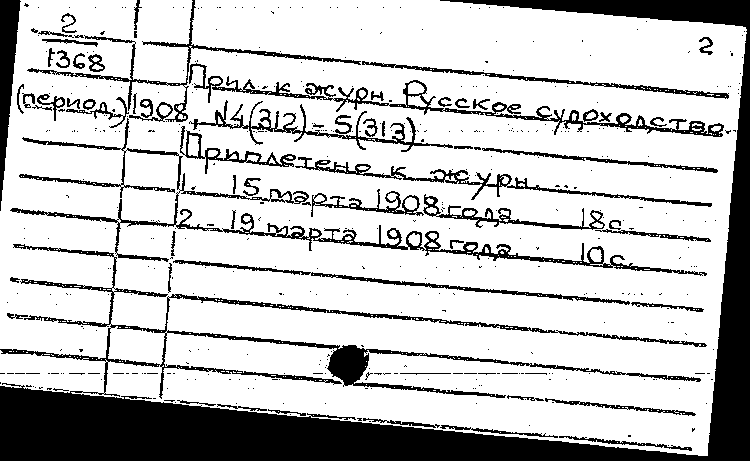 2
2
1368
Прил. к журн. Русское судоходство.
(период.) 1908, №4(312) – 5(313).
Приплетено к журн. ...
1. 15 марта 1908 года. 18с.
2. - 19 марта 1908 года. 10с.